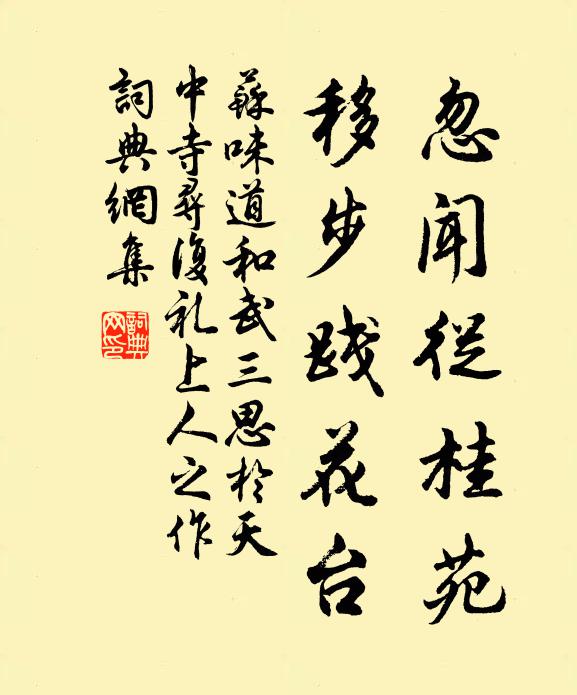 忽闻從桂苑
移步践花台
蘇味道和武三思於天
中寺尋復礼上人之作
詞典網集
詞典
网印